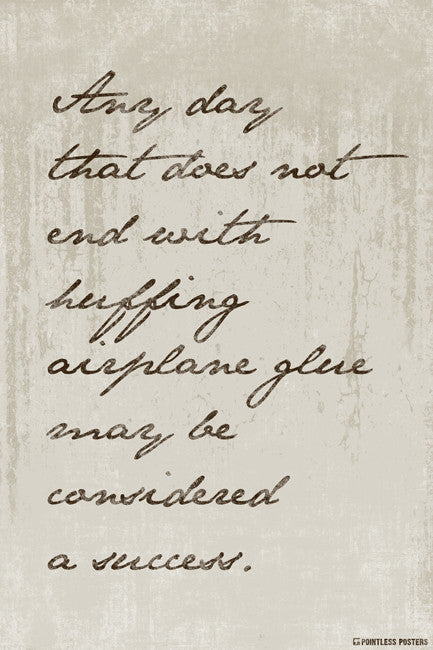 Any day
that does not
end with
huffing
airplane glue
may be
considered
a success.
POINTLESS POSTERS